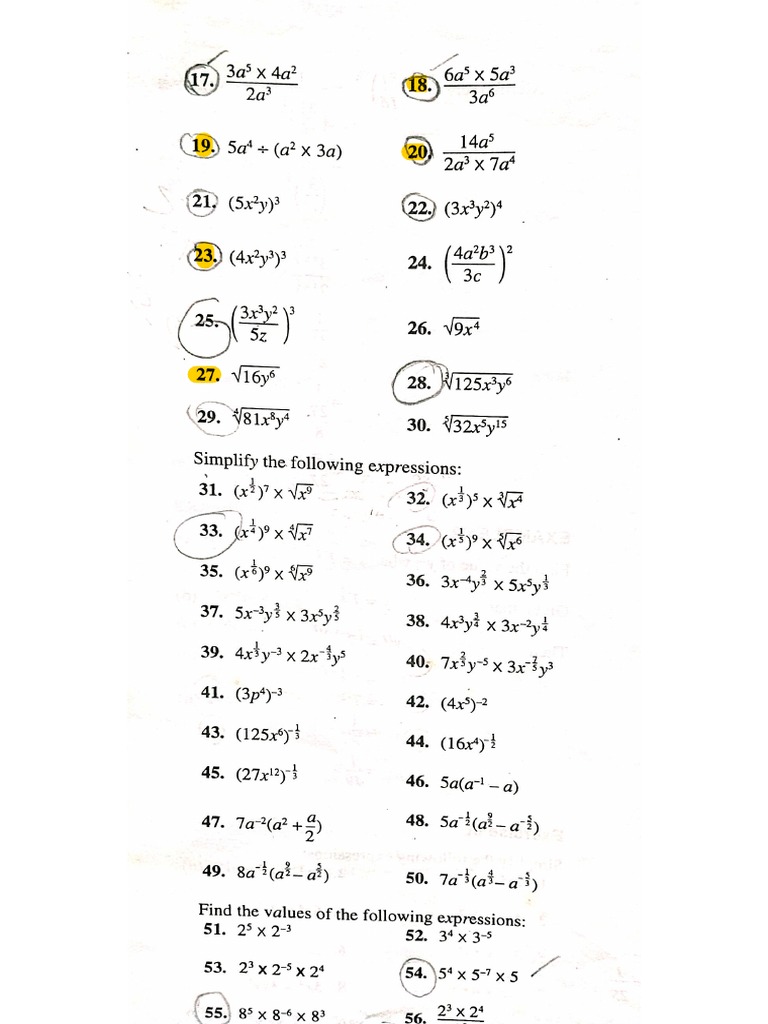 17. (3a⁵ × 4a²)/(2a³) 18. (6a⁵ × 5a³)/(3a⁶)
19. 5a⁴ ÷ (a² × 3a) 20. 14a⁵/(2a³ × 7a⁴)
21. (5x²y)³ 22. (3x³y²)⁴
23. (4x²y³)³ 24. (4a²b³/3c)²
25. (3x³y²/5z)³ 26. √9x⁴
27. √16y⁶ 28. ∛125x³y⁶
29. ∜81x⁸y⁴ 30. ⁵√32x⁵y¹⁵
Simplify the following expressions:
31. (x^½)⁷ × √x⁹ 32. (x^⅓)⁵ × ∛x⁴
33. (x^¼)⁹ × ∜x⁷ 34. (x^⅕)⁹ × ⁵√x⁶
35. (x^⅙)⁹ × ⁶√x⁹ 36. 3x⁻⁴y^⅔ × 5x⁵y^⅓
37. 5x⁻³y^⅗ × 3x⁵y^⅖ 38. 4x³y^¾ × 3x⁻²y^¼
39. 4x^⅓y⁻³ × 2x^-4/3y⁵ 40. 7x^⅖y⁻⁵ × 3x^-7/5y³
41. (3p⁴)⁻³ 42. (4x⁵)⁻²
43. (125x⁶)^-⅓ 44. (16x⁴)^-½
45. (27x¹²)^-⅓ 46. 5a(a⁻¹ – a)
47. 7a⁻²(a² + a/2) 48. 5a^-½(a^9/2 – a^-5/2)
49. 8a^-½(a^9/2 – a^5/2) 50. 7a^-⅓(a^4/3 – a^-5/3)
Find the values of the following expressions:
51. 2⁵ × 2⁻³ 52. 3⁴ × 3⁻⁵
53. 2³ × 2⁻⁵ × 2⁴ 54. 5⁴ × 5⁻⁷ × 5
55. 8⁵ × 8⁻⁶ × 8³ 56. 2³ × 2⁴